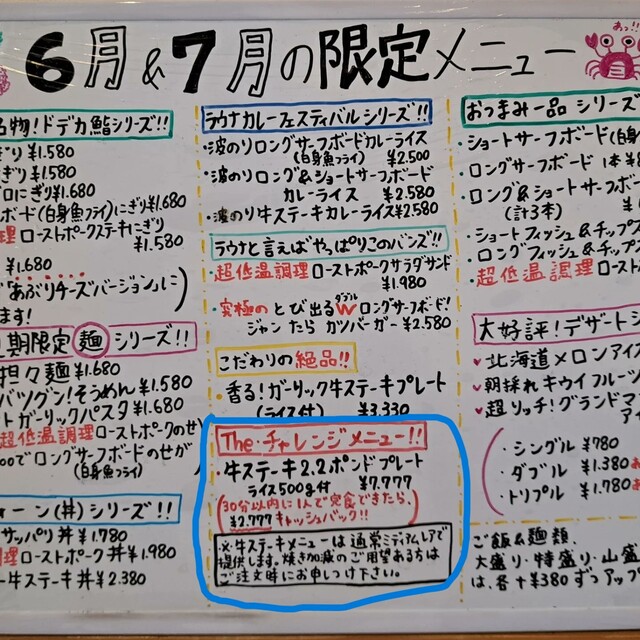 6月&7月の限定メニュー
おっ!!
名物!ドデカ鮨シリーズ!!
ぎり ¥1.580
ぎり ¥1.580
にぎり¥1.680
ボード(白身魚フライ)にぎり¥1.680
ローストポークステーキにぎり
¥1.580
¥1.680
あぶりチーズバージョンに
ます!
期限定 麺 シリーズ!!
担々麺 ¥1.680
バツグン!そうめん ¥1.580
ガーリックパスタ ¥1.680
超低温調理ローストポークのせ
でロングサーフボードのせが
(白身魚フライ)
(丼)シリーズ!!
サッパリ丼 ¥1.780
ローストポーク丼 ¥1.980
牛ステーキ丼 ¥2.380
ラウナカレーフェスティバルシリーズ!!
・波のりロングサーフボードカレーライス
(白身魚フライ) ¥2.500
・波のりロング&ショートサーフボード
カレーライス ¥2.580
・波のり牛ステーキカレーライス¥2.580
ラウナと言えばやっぱりこのバンズ!!
・超低温調理ローストポークサラダサンド
¥1.980
・究極のとび出るWロングサーフボード!
ダブル
ジャンたらガツバーガー ¥2.580
こだわりの絶品!!
・香る!ガーリック牛ステーキプレート
(ライス付) ¥3.330
The・チャレンジメニュー!!
・牛ステーキ2.2ポンドプレート
ライス500g付 ¥7.777
(30分以内に1人で完食できたら、
¥2.777キャッシュバック!!)
・※牛ステーキメニューは通常ミディアムレアで
提供します。焼き加減のご要望ある方は
ご注文時にお申しつけ下さい。
おつまみ一品シリーズ
・ショートサーフボード(白身
・ロングサーフボード 1本
・ロング&ショートサーフボ
(計3本)
・ショートフィッシュ&チップス
・ロングフィッシュ&チップス
・超低温調理ロースト
大好評!デザートシ
北海道メロンアイス
朝採れキウイフルーツ
超リッチ!グランドマ
・シングル ¥780
・ダブル ¥1.380
・トリプル ¥1.780
ご飯&麺類、
大盛り・特盛り・山盛
は、各+¥380ずつアップ